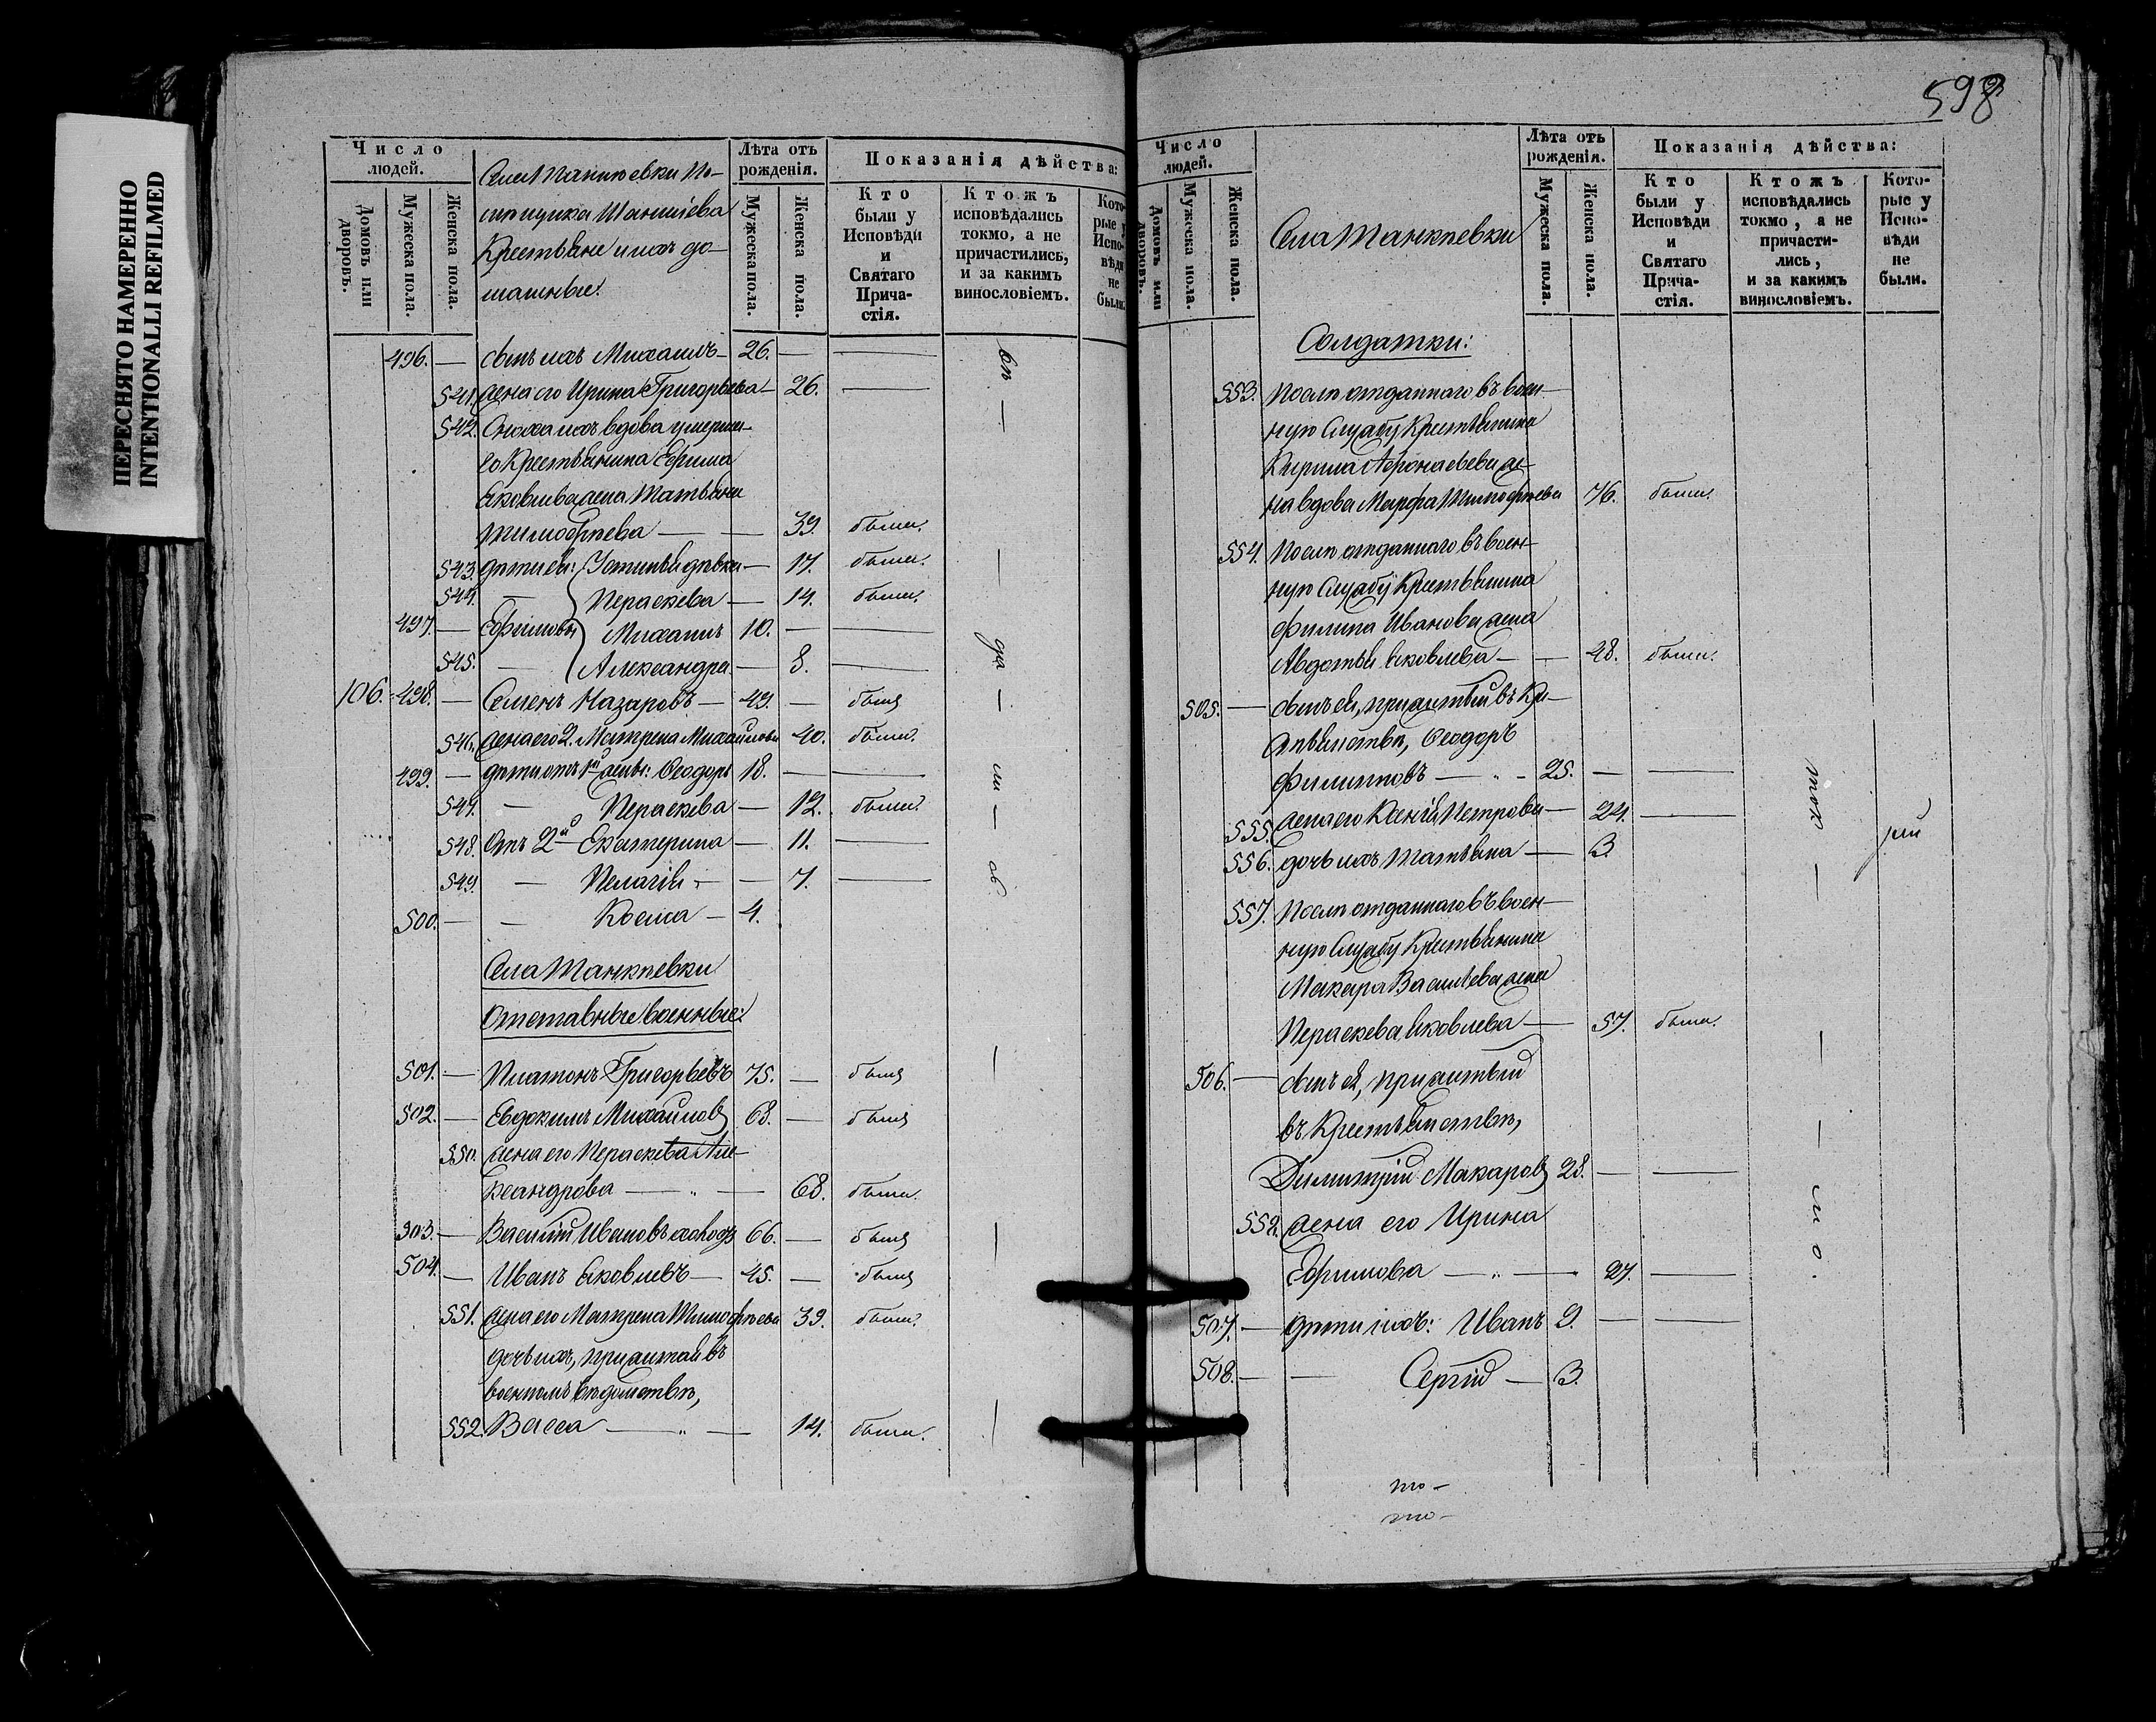 598
ПЕРЕСНЯТО НАМЕРЕННО
INTENTIONALLI REFILMED
Число людей.
Домовъ или дворовъ.
Мужеска пола.
Женска пола.
Села Танкѣевки По-
мѣщика
Крестьяне и ихъ до-
машные.
Лѣта отъ рожденія.
Мужеска пола.
Женска пола.
Показанія дѣйства:
Кто были у Исповѣди и Святаго Прича-стія.
Ктожъ исповѣдались токмо, а не причастились, и за какимъ винословіемъ.
Кото-рые у Испо-вѣди не были.
496. — сынъ ихъ Михаилъ — 26. —
541. жена его Ирина Григорьева — 26.
542. Сноха ихъ вдова умерша-
го Крестьянина Ефима
Яковлева жена Татьяна
Тимофѣева — — 39. была.
543. дѣти ея: Устинья дѣвка — 17. была.
544. — Пераскева — 14. была.
497. — Ефимовы Михаилъ 10. —
545. — Александра — 8.
106. 498. — Семенъ Назаровъ — 49. — былъ
546. жена его 2. Матрена Михайлова 40. была.
499. — дѣти отъ 1й жены: Ѳеодоръ 18. —
547. — Пераскева — 12. была.
548. Отъ 2й Екатерина — 11.
549. — Пелагія — — 7.
500. — — Косма — 4.
Села Танкѣевки
Отставные военные:
501. — Платонъ Григорьевъ 75. — былъ
502. — Евдокимъ Михайловъ 68. — былъ
550. жена его Пераскева Але-
ксандрова — „ — 68. была.
503. — Василій Ивановъ 66. — былъ
504. — Иванъ Яковлевъ — 45. — былъ
551. жена его Матрена Тимофѣева 39. была.
дочь ихъ, прижитая въ
военномъ вѣдомствѣ,
552. Васса — „ — 14. была.
Число людей.
Домовъ или дворовъ.
Мужеска пола.
Женска пола.
Села Танкѣевки
Лѣта отъ рожденія.
Мужеска пола.
Женска пола.
Показанія дѣйства:
Кто были у Исповѣди и Святаго Прича-стія.
Ктожъ исповѣдались токмо, а не причасти-лись, и за какимъ винословіемъ.
Кото-рые у Испо-вѣди не были.
Солдатки:
553. Послѣ отданнаго въ воен-
ную службу Крестьянина
Кирила Афонасьева же-
на вдова Марфа Тимофѣева 76. была.
554. Послѣ отданнаго въ воен-
ную службу Крестьянина
Филипа Иванова жена
Авдотья Яковлева — — 48. была.
505. — сынъ ея, прижитый въ Кре-
стьянствѣ, Ѳеодоръ
Филиповъ — „ — 25. —
555. жена его Ксенія Петрова — 24.
556. дочь ихъ Татьяна — 3.
557. Послѣ отданнаго въ воен-
ную службу Крестьянина
Макара Васильева жена
Пераскева Яковлева — 57. была.
506. — сынъ ея, прижитый
въ Крестьянствѣ,
Димитрій Макаровъ 28. —
558. жена его Ирина
Ефимова — „ — 27.
507. — дѣти ихъ: Иванъ 9. —
508. — — Сергій — 3.